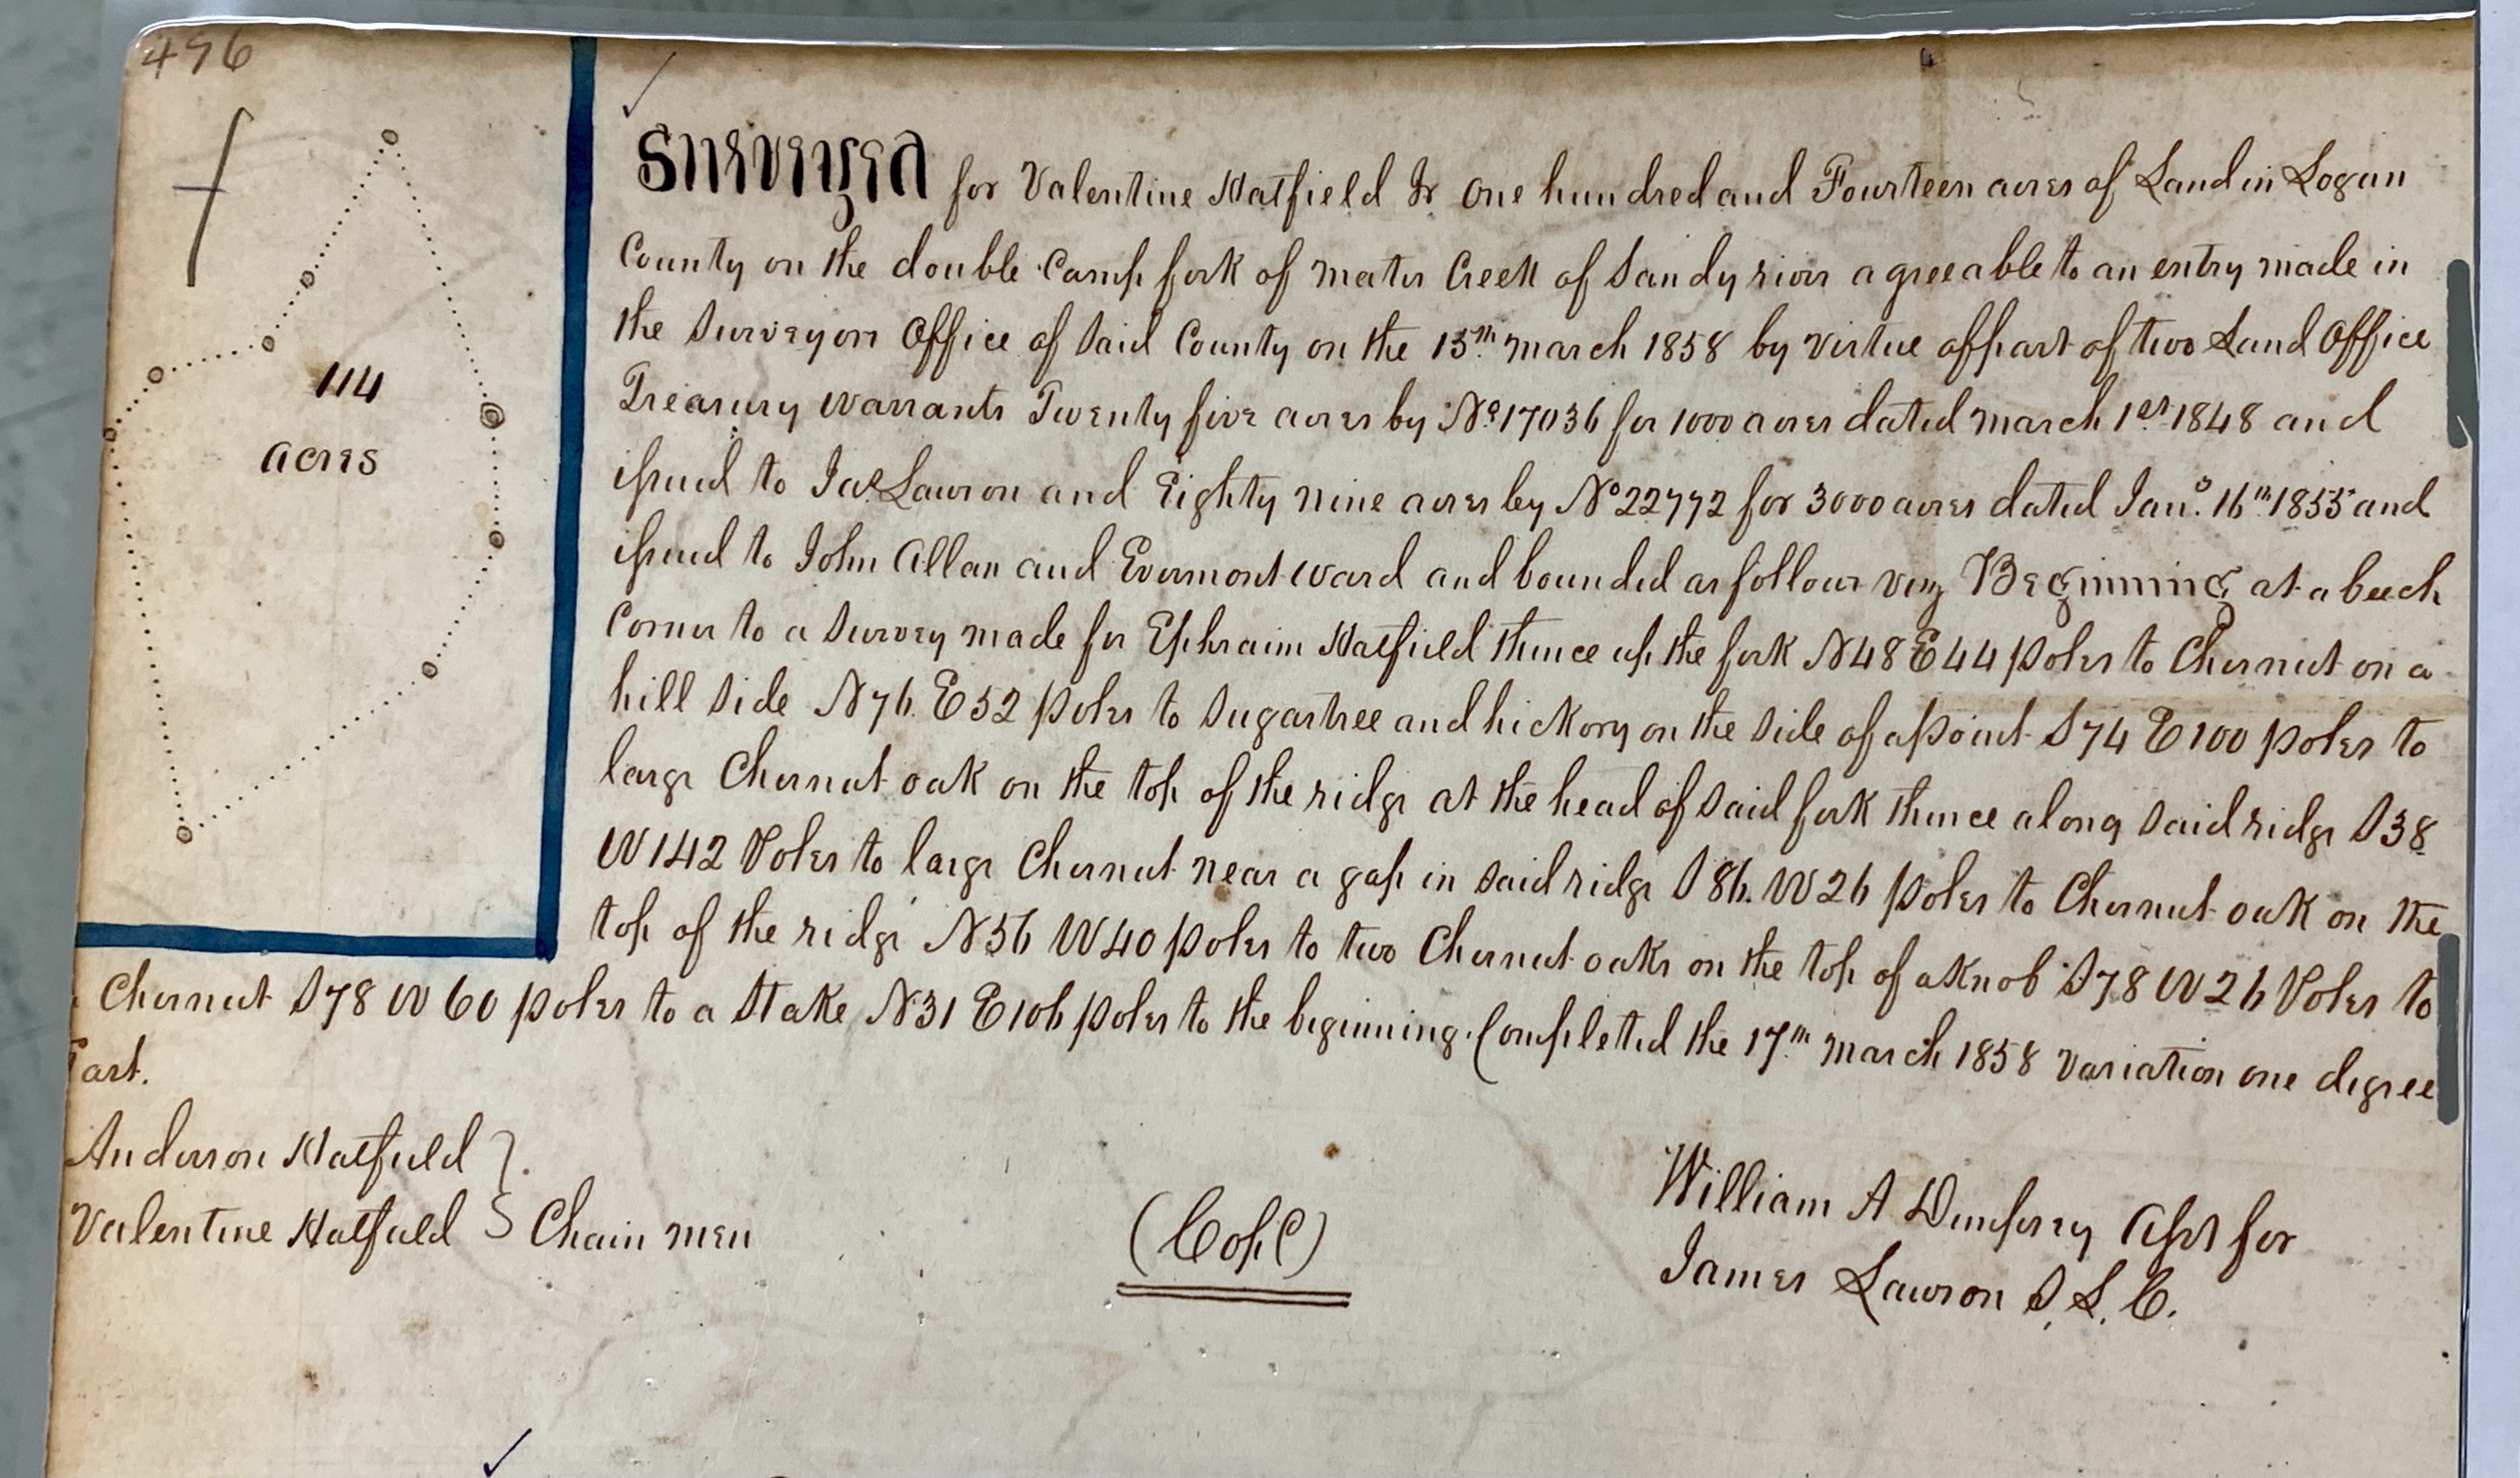 496
114
acres
Surveyed for Valentine Hatfield Jr One hundred and Fourteen acres of Land in Logan
County on the double Camp fork of mates Creek of Sandy river agreeable to an entry made in
the Surveyors Office of Said County on the 15th march 1858 by virtue of part of two Land Office
Treasury warrants Twenty five acres by No 17036 for 1000 acres dated march 1st 1848 and
issued to Jas Lawson and Eighty nine acres by No 22772 for 3000 acres dated Jany 16th 1855 and
issued to John Allan and Evermont Ward and bounded as follows viz Beginning at a beech
Corner to a Survey made for Ephraim Hatfield thence up the fork N48 E44 poles to Chesnut on a
hill Side N76 E52 poles to Sugartree and hickory on the Side of a point S74 E100 poles to
large Chesnut oak on the top of the ridge at the head of Said fork thence along Said ridge S38
W142 Poles to large Chesnut near a gap in Said ridge S86 W26 poles to Chesnut oak on the
top of the ridge N56 W40 poles to two Chesnut oaks on the top of a Knob S78 W26 Poles to
Chesnut S78 W60 poles to a Stake N31 E106 poles to the beginning. Completed the 17th March 1858 Variation one degree
East.
Anderson Hatfield
Valentine Hatfield } Chain men
(Copy)
William A Dempsey Asst for
James Lawson S. L. C.